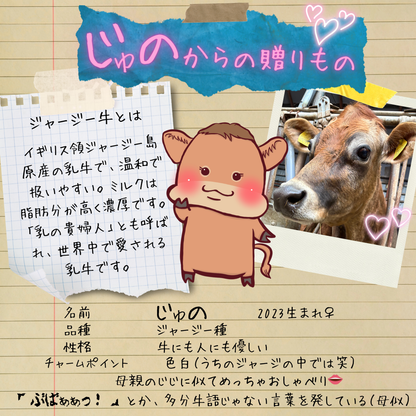 じゅのからの贈りもの
ジャージー牛とは
イギリス領ジャージー島
原産の乳牛で、温和で
扱いやすい。ミルクは
脂肪分が高く濃厚です。
「乳の貴婦人」とも呼ば
れ、世界中で愛される
乳牛です。
名前 じゅの 2023生まれ♀
品種 ジャージー種
性格 牛にも人にも優しい
チャームポイント 色白(うちのジャージの中では笑)
母親のじじに似てめっちゃおしゃべり👄
「ぶばぁぁっ!」とか、多分牛語じゃない言葉を発している(母似)